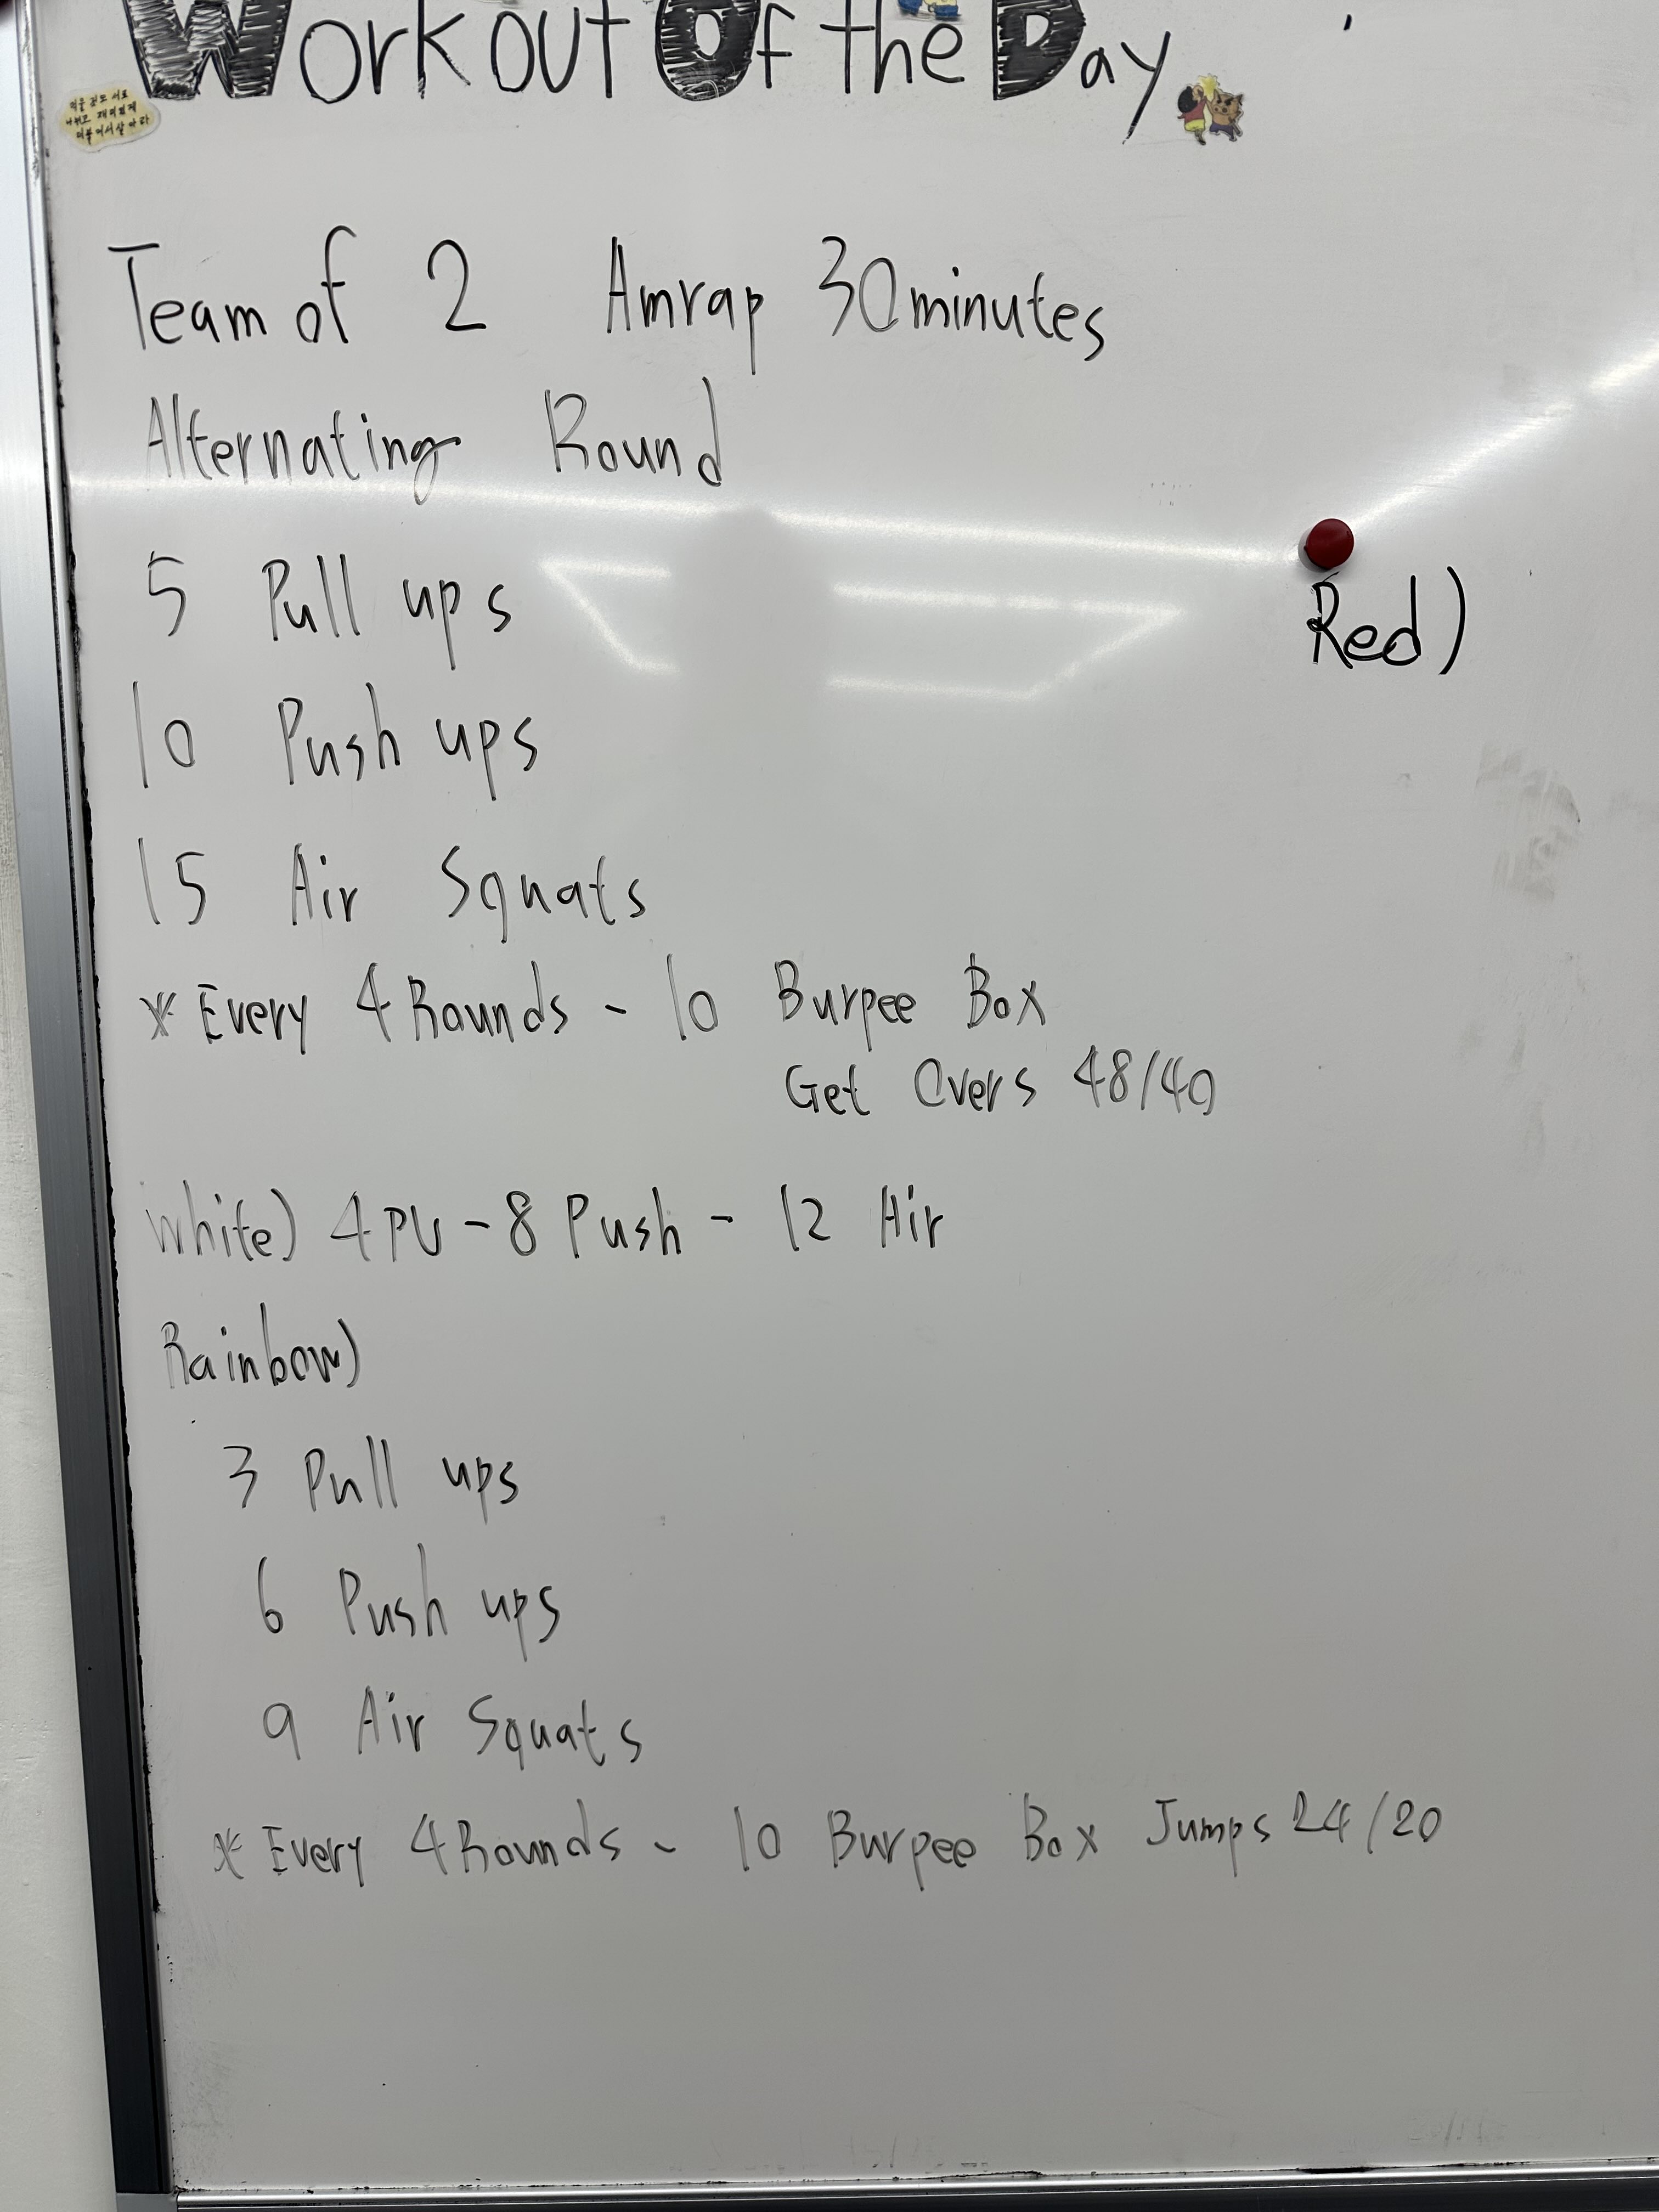 Workout Of the Day
Team of 2 Amrap 30minutes
Alternating Round
5 Pull ups
Red)
10 Push ups
15 Air Squats
* Every 4 Rounds - 10 Burpee Box
Get Overs 48/40
White) 4 PU - 8 Push - 12 Air
Rainbow)
3 Pull ups
6 Push ups
9 Air Squats
* Every 4 Rounds - 10 Burpee Box Jumps 24/20